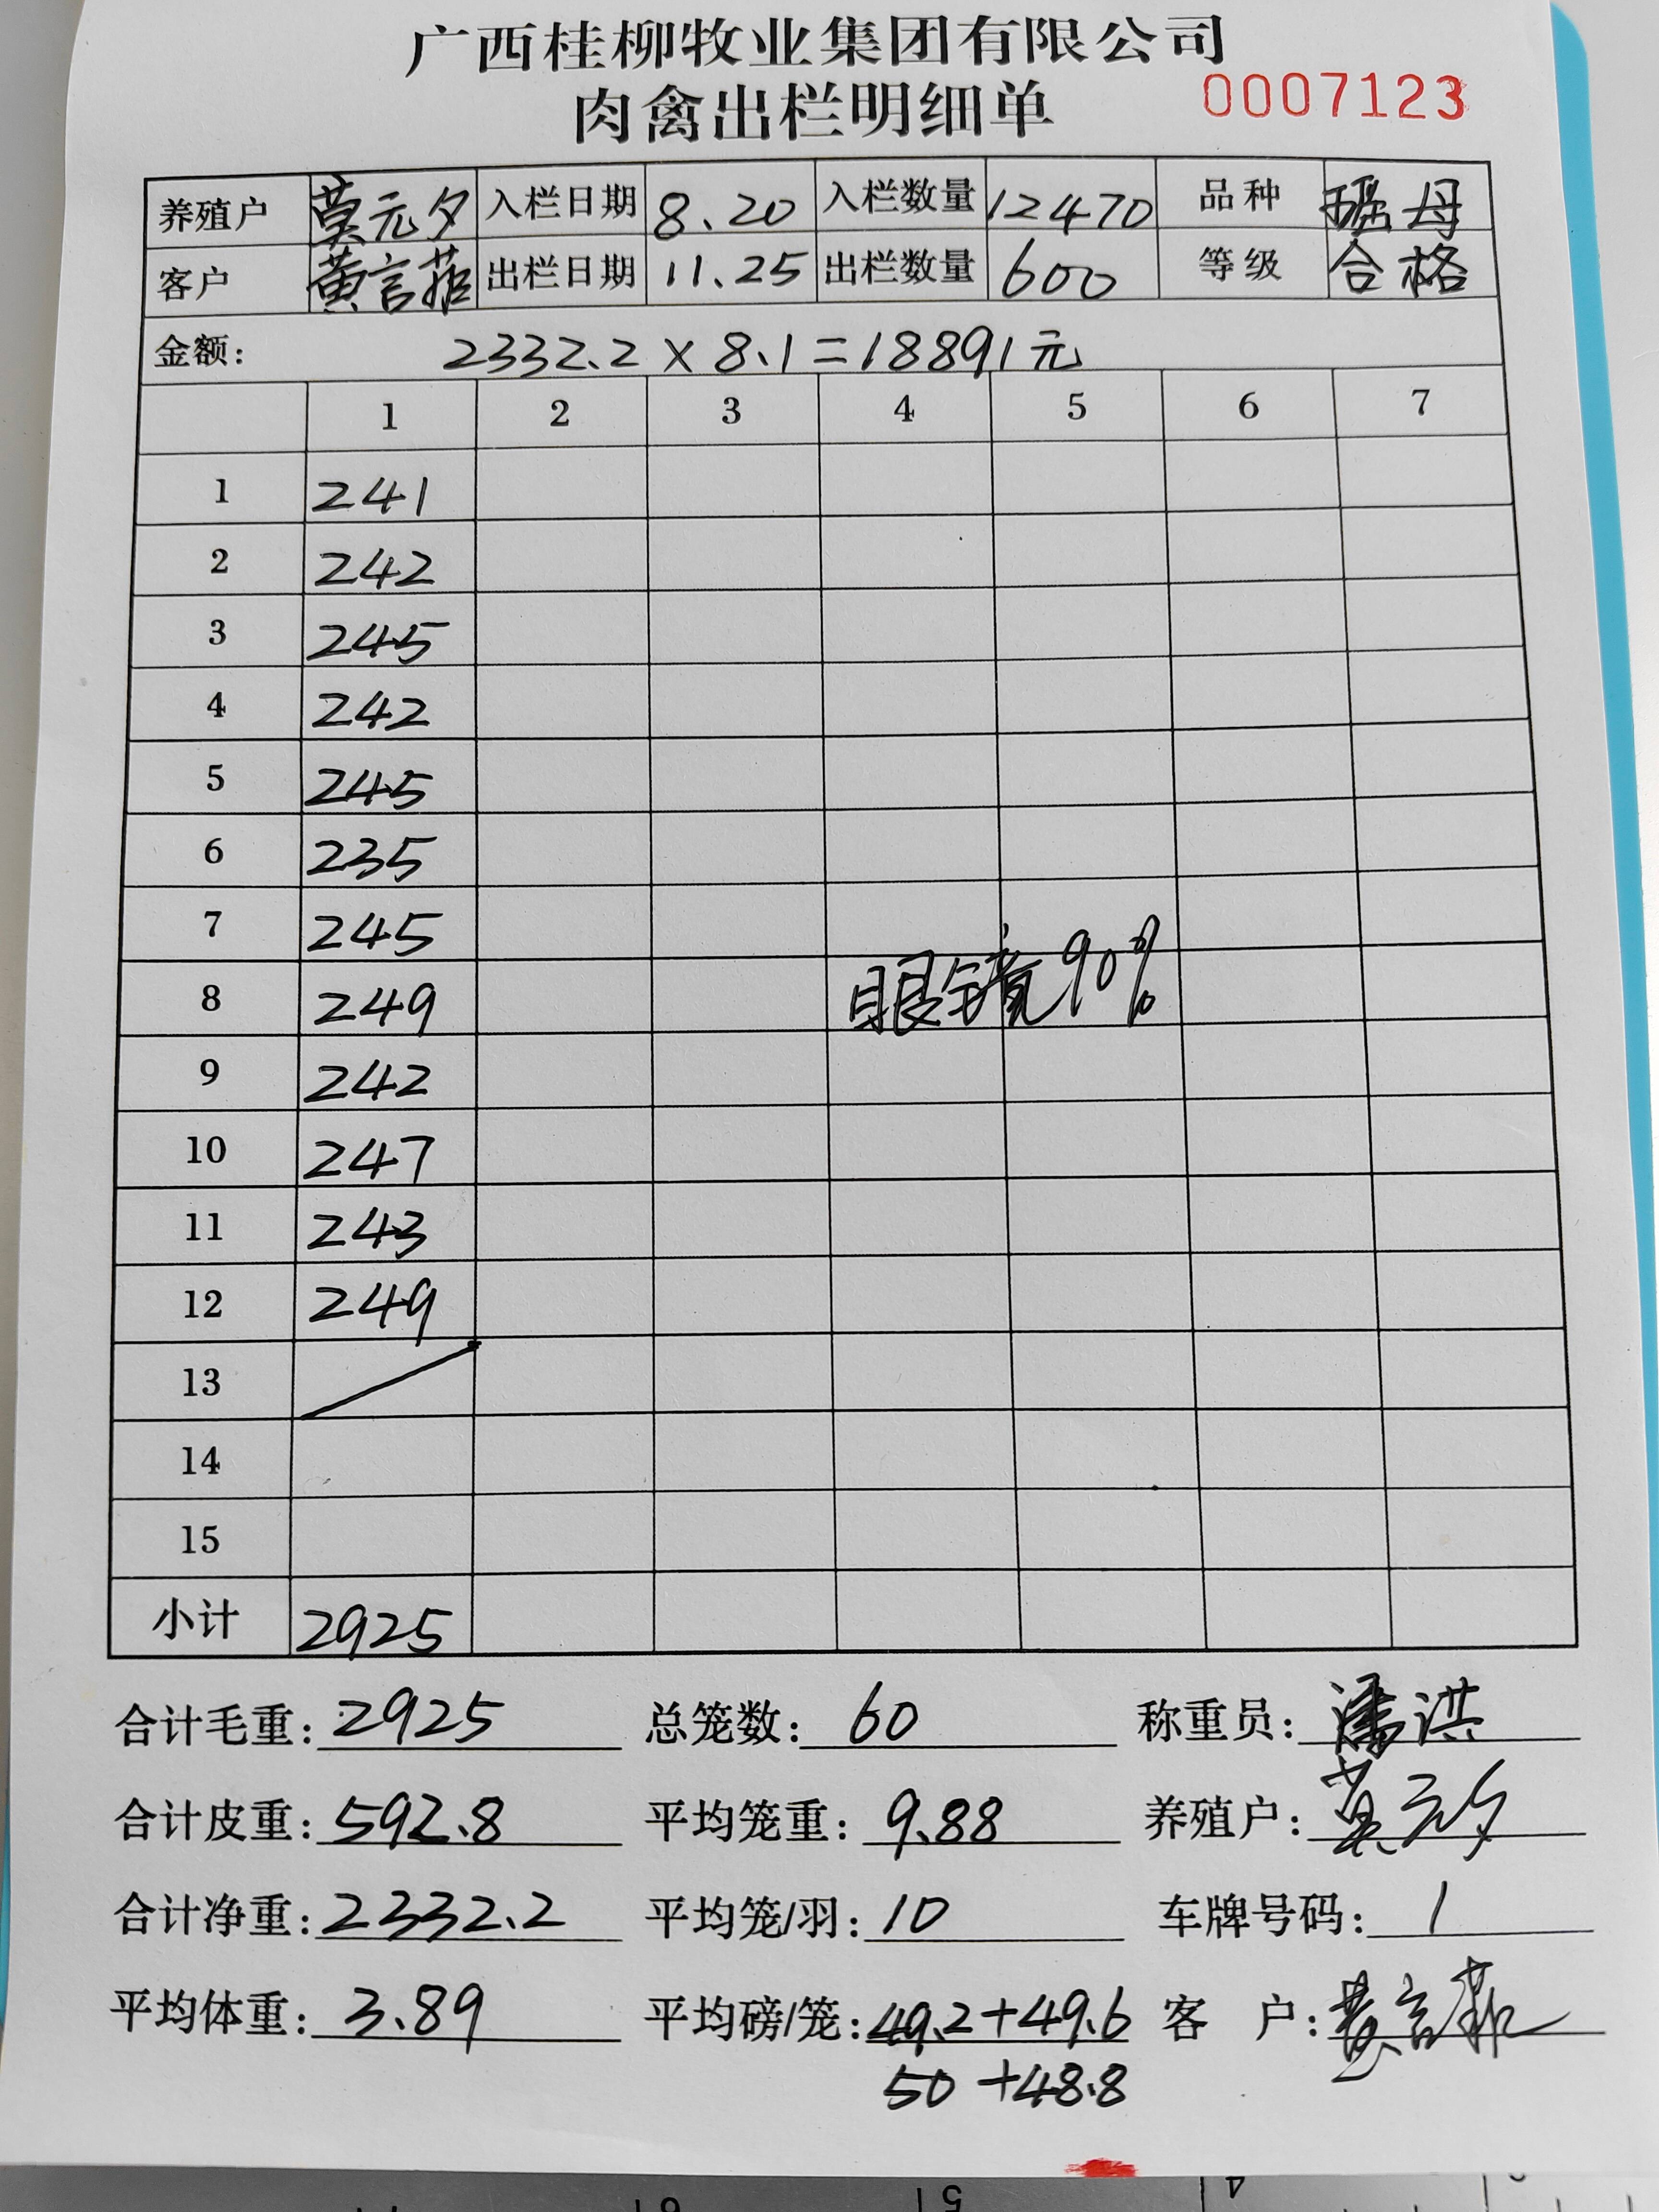 广西桂柳牧业集团有限公司
肉禽出栏明细单
0007123
养殖户 莫元夕 入栏日期 8.20 入栏数量 12470 品种 瑶母
客户 黄言菲 出栏日期 11.25 出栏数量 600 等级 合格
金额: 2332.2 × 8.1 = 18891元
1 2 3 4 5 6 7
1 241
2 242
3 245
4 242
5 245
6 235
7 245
8 249 眼镜90%
9 242
10 247
11 243
12 249
13
14
15
小计 2925
合计毛重: 2925 总笼数: 60 称重员: 潘洪
合计皮重: 592.8 平均笼重: 9.88 养殖户: 莫元夕
合计净重: 2332.2 平均笼/羽: 10 车牌号码: 1
平均体重: 3.89 平均磅/笼: 49.2+49.6 客 户: 黄言菲
50 +48.8